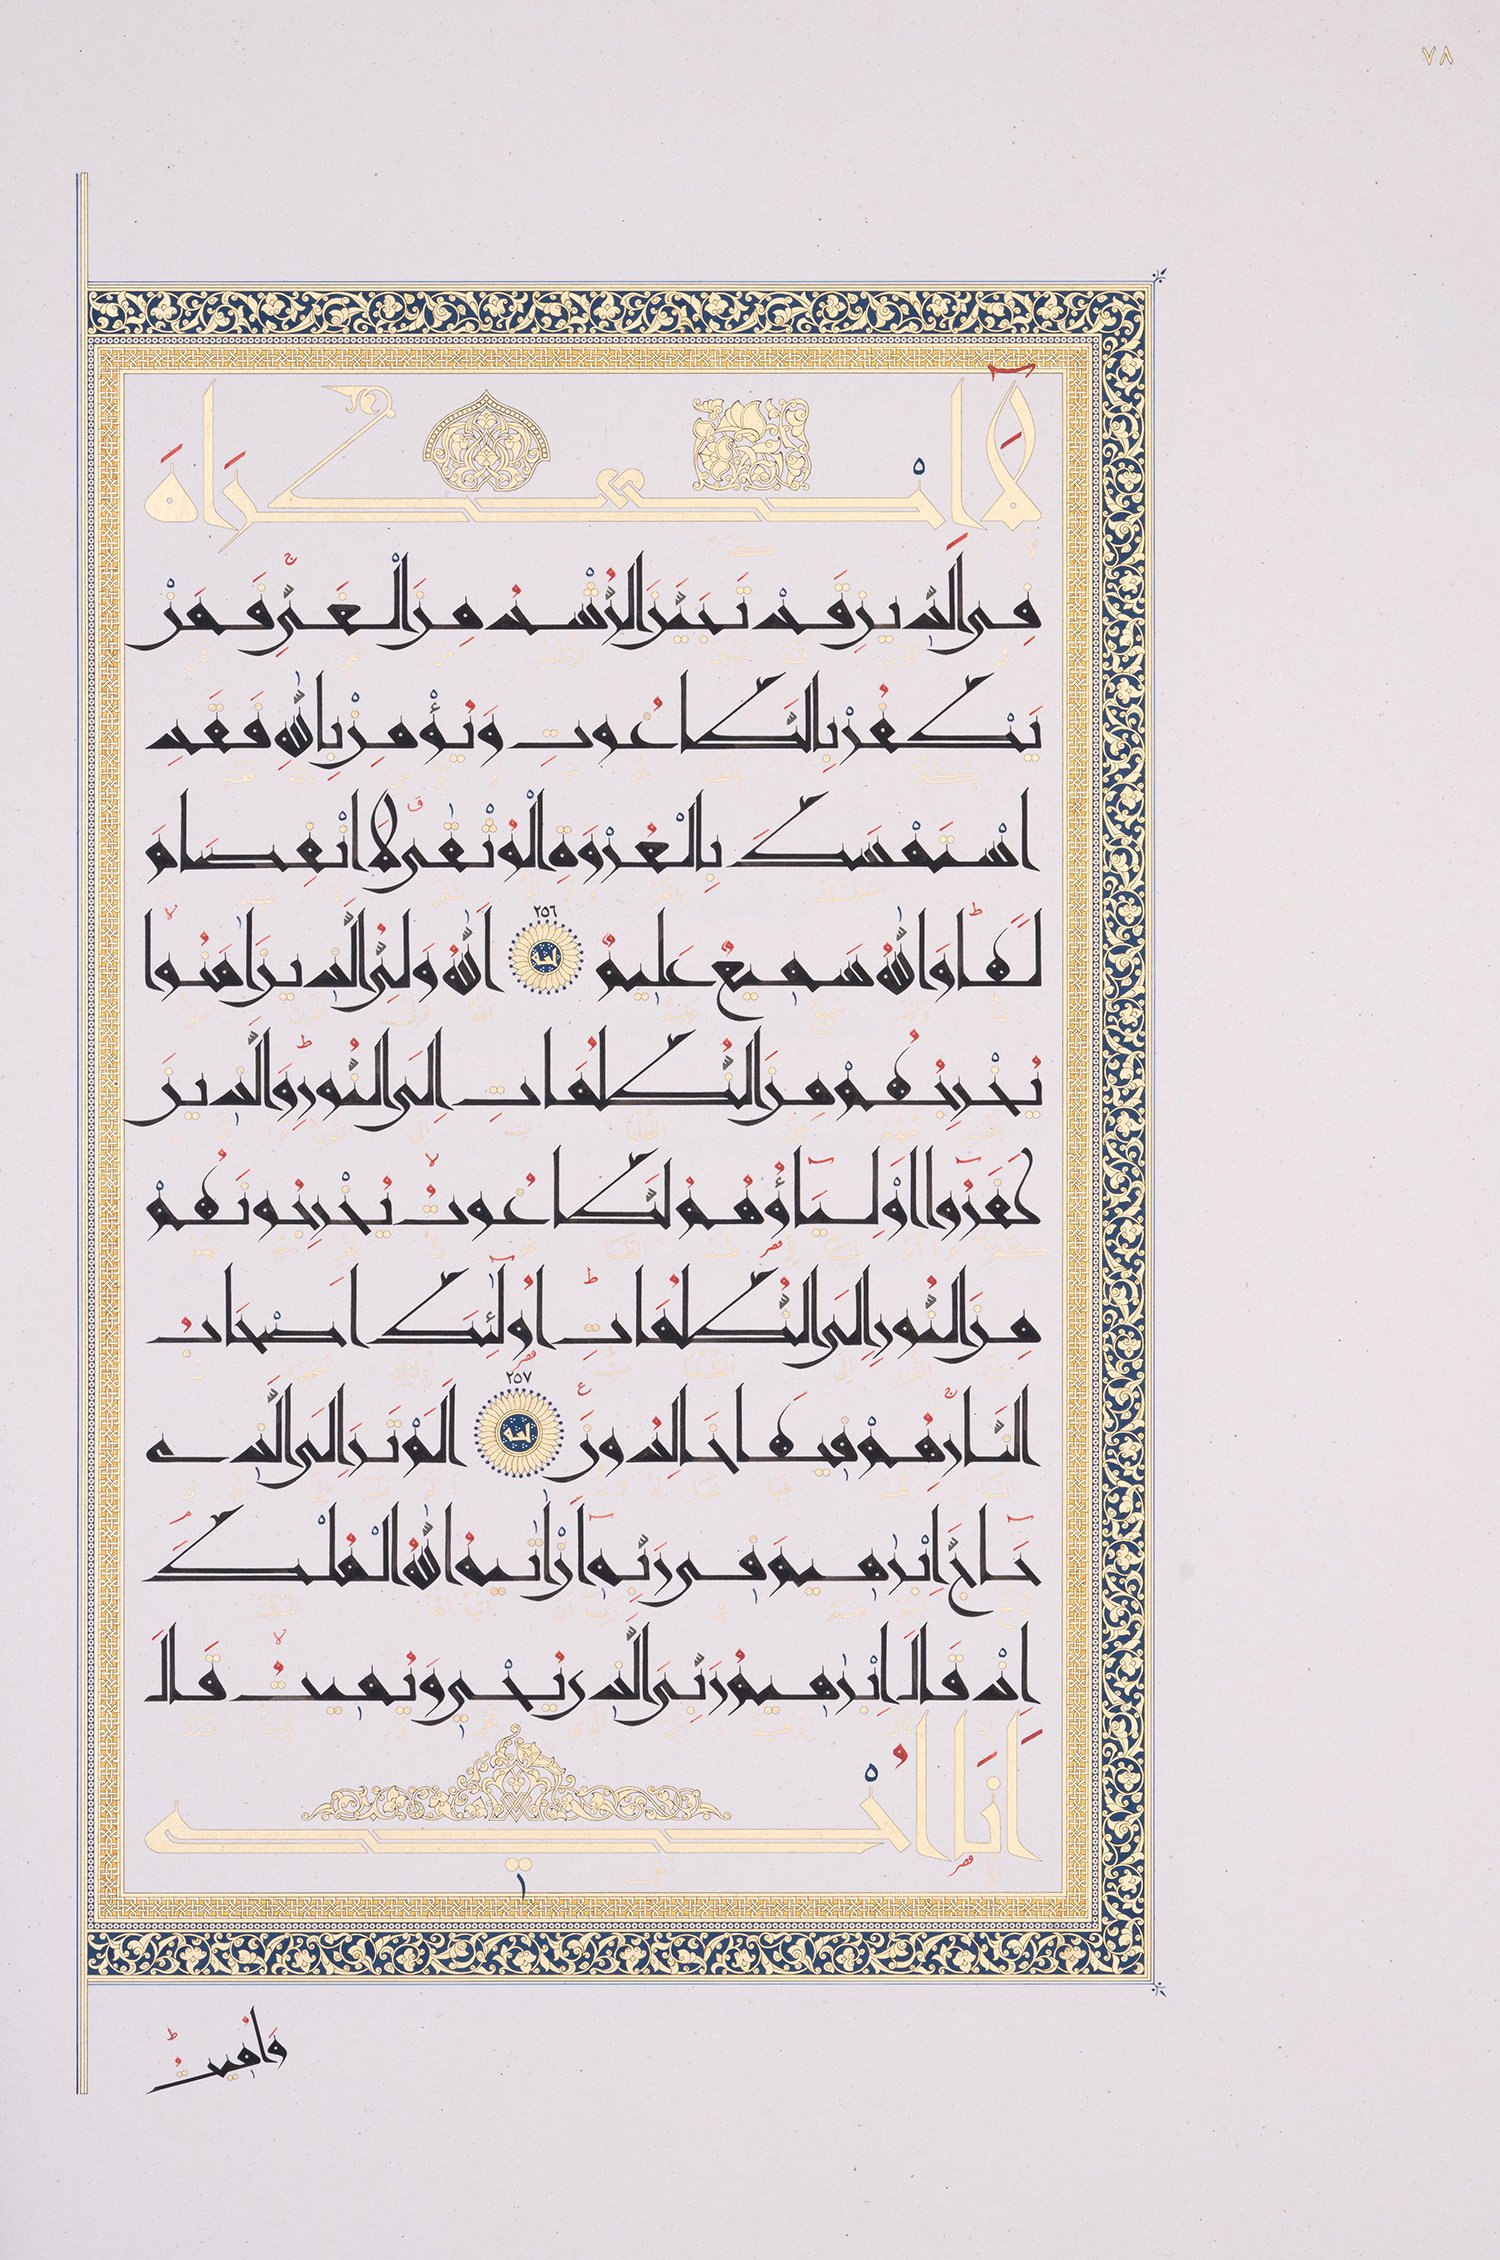 ٧٨
لَآ اِكْرَاهَ
فِي الدّ۪ينِ قَدْ تَبَيَّنَ الرُّشْدُ مِنَ الْغَيِّۚ فَمَنْ
يَكْفُرْ بِالطَّاغُوتِ وَيُؤْمِنْ بِاللّٰهِ فَقَدِ
اسْتَمْسَكَ بِالْعُرْوَةِ الْوُثْقٰىۗ لَا انْفِصَامَ
لَهَاۜ وَاللّٰهُ سَم۪يعٌ عَل۪يمٌ ٢٥٦ اَللّٰهُ وَلِيُّ الَّذ۪ينَ اٰمَنُواۙ
يُخْرِجُهُمْ مِنَ الظُّلُمَاتِ اِلَى النُّورِۜ وَالَّذ۪ينَ
كَفَرُٓوا اَوْلِيَٓاؤُ۬هُمُ الطَّاغُوتُۙ يُخْرِجُونَهُمْ
مِنَ النُّورِ اِلَى الظُّلُمَاتِۜ اُو۬لٰٓئِكَ اَصْحَابُ
النَّارِۚ هُمْ ف۪يهَا خَالِدُونَ۟ ٢٥٧ اَلَمْ تَرَ اِلَى الَّذ۪ي
حَٓاجَّ اِبْرٰه۪يمَ ف۪ي رَبِّه۪ٓ اَنْ اٰتٰيهُ اللّٰهُ الْمُلْكَۢ
اِذْ قَالَ اِبْرٰه۪يمُ رَبِّيَ الَّذ۪ي يُحْي۪ وَيُم۪يتُۙ قَالَ
اَنَا۬ اُحْي۪
وَاُم۪يتُۜ